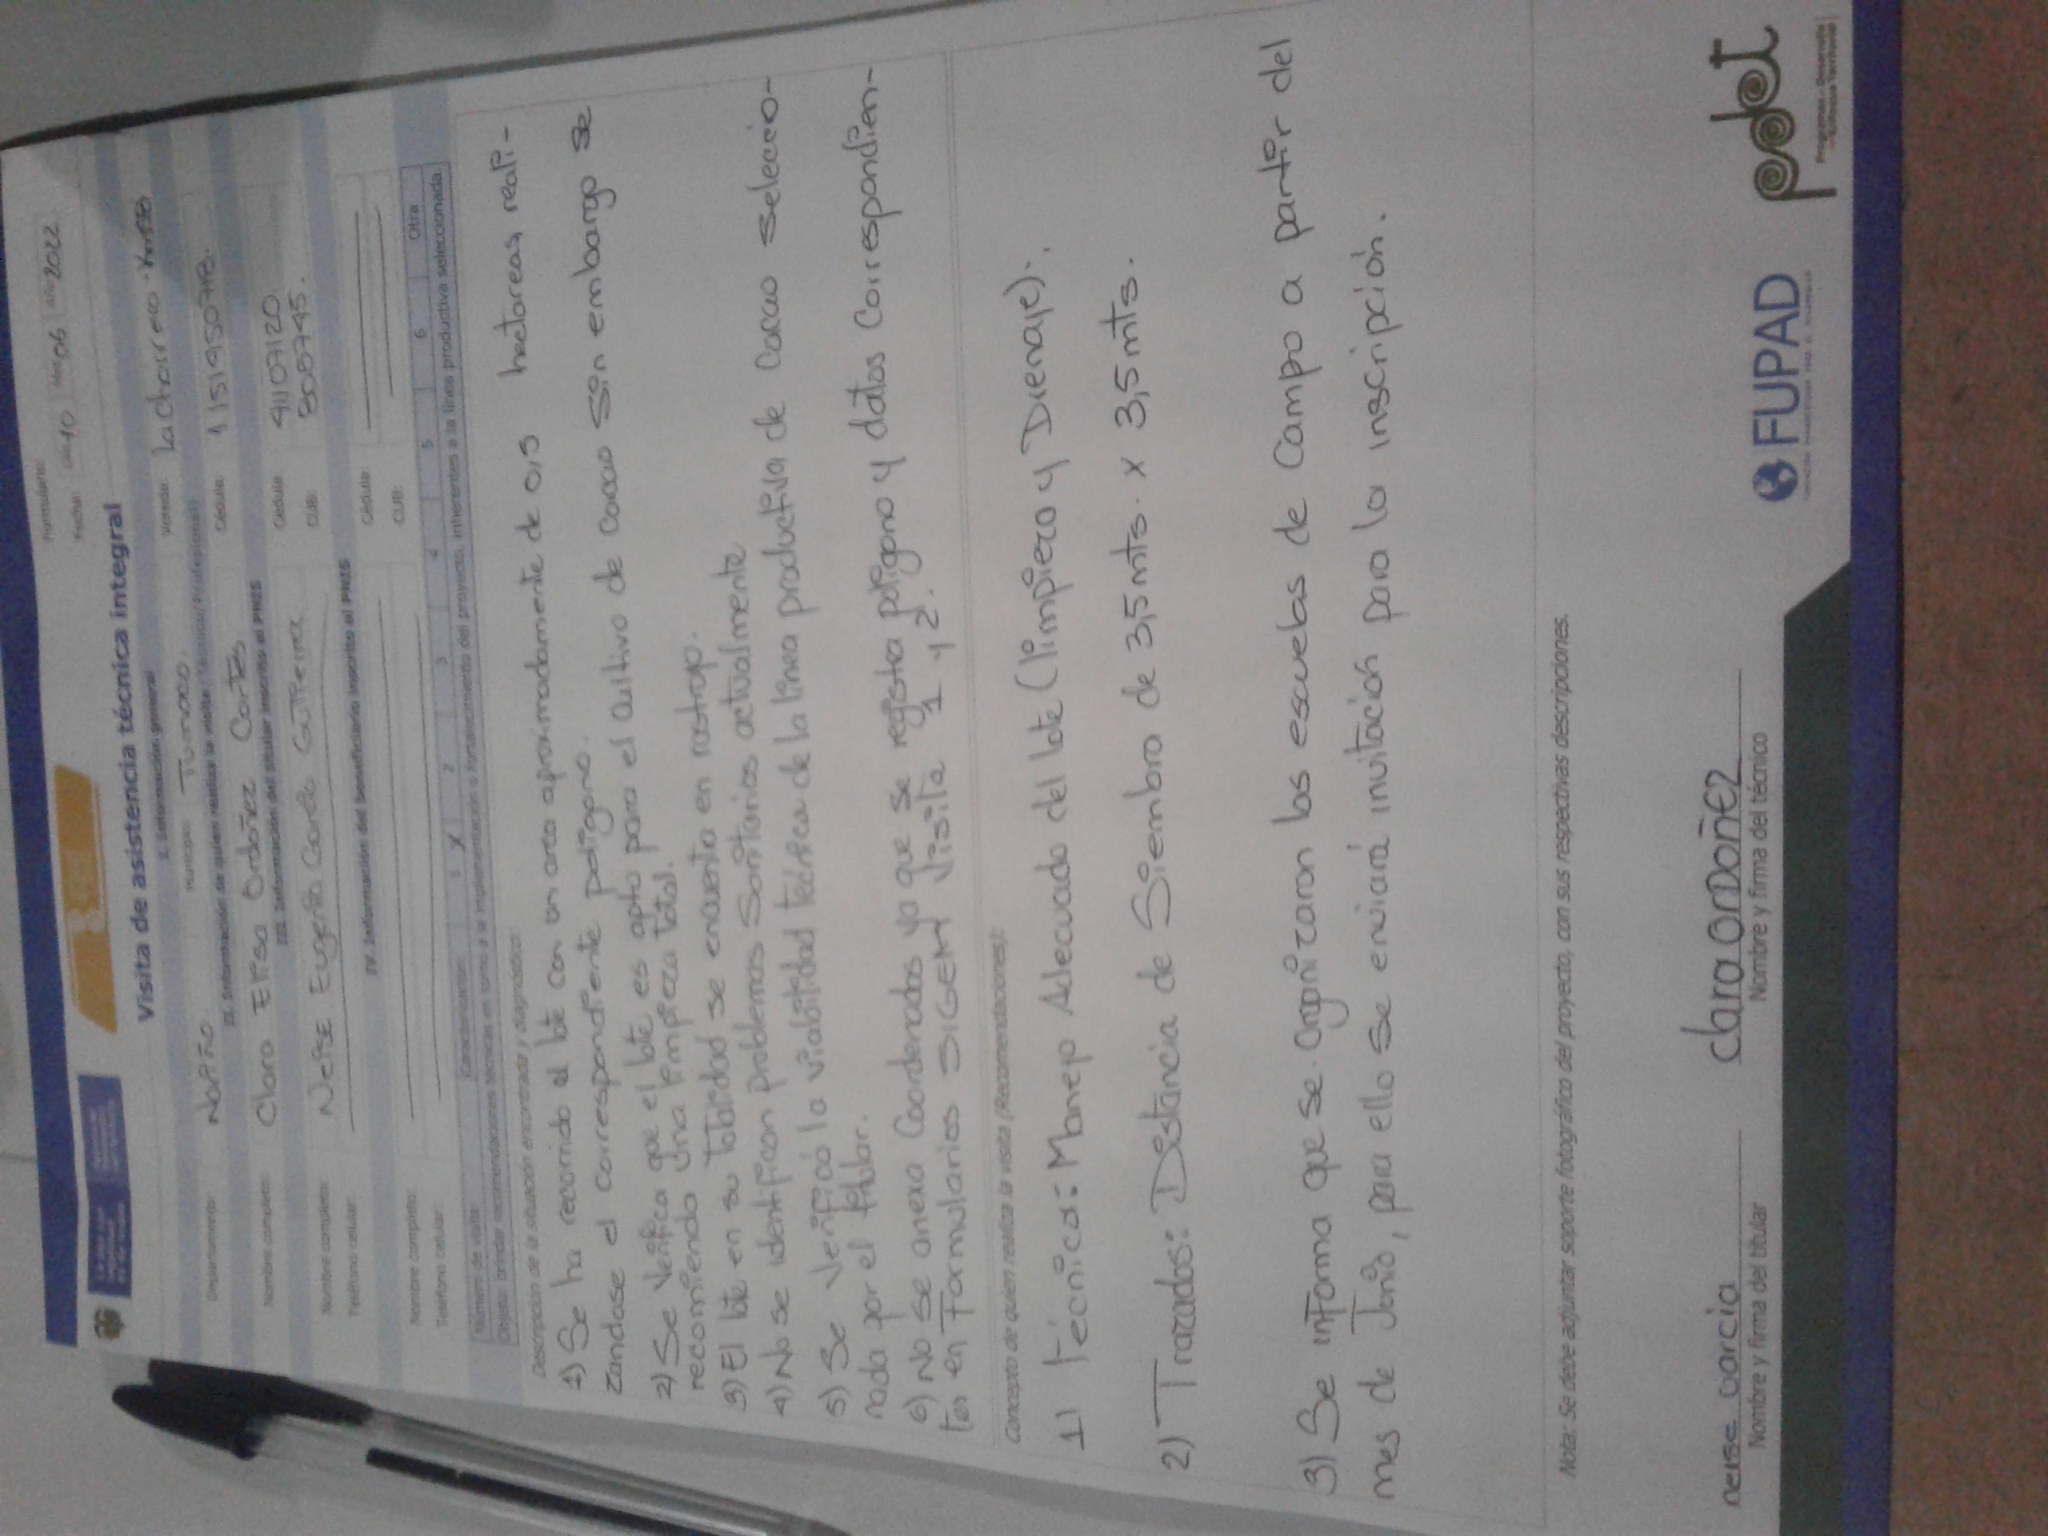 Formulario:
Fecha: Día 10 Mes 06 Año 2022
Visita de asistencia técnica integral
I. Información general
Departamento: Nariño Municipio: Tumaco. Vereda: La chorrera
II. Información de quien realiza la visita (Técnico/Profesional)
Nombre completo: Clara Elisa Ordoñez Cortes Cédula:
III. Información del titular inscrito al PNIS
Nombre completo: Neise Eugenia Garcia Gutierrez Cédula: 41107120
Teléfono celular: CUB:
IV. Información del beneficiario inscrito al PNIS
Nombre completo: Cédula:
Teléfono celular: CUB:
Número de visita: Caracterización: 1 X 2 3 4 5 6 Otra
Objeto: brindar recomendaciones técnicas en torno a la implementación o fortalecimiento del proyecto, inherentes a la línea productiva seleccionada.
Descripción de la situación encontrada y diagnóstico:
1) Se ha recorrido el lote con un area aproximadamente de 0,5 hectareas, reali-
zandose el correspondiente poligono.
2) Se Verifica que el lote es apto para el cultivo de cacao sin embargo se
recomienda una limpieza total.
3) El lote en su totalidad se encuentra en rastrojo.
4) No se identifican problemas Sanitarios actualmente
5) Se Verificó la viabilidad técnica de la linea productiva de cacao seleccio-
nada por el titular.
6) No se anexa Coordenadas ya que se registra poligono y datos Correspondien-
tes en Formularios SIGEM Visita 1 y 2.
Concepto de quien realiza la visita (Recomendaciones):
1) Técnicos: Manejo Adecuado del lote (limpieza y Drenaje).
2) Trazados: Distancia de Siembra de 3,5 mts. x 3,5 mts.
3) Se informa que se Organizaron las escuelas de Campo a partir del
mes de Junio, para ello se enviará invitación para la inscripción.
Nota: Se debe adjuntar soporte fotográfico del proyecto, con sus respectivas descripciones.
neise Garcia clara ordoñez
Nombre y firma del titular Nombre y firma del técnico
FUPAD
pdet